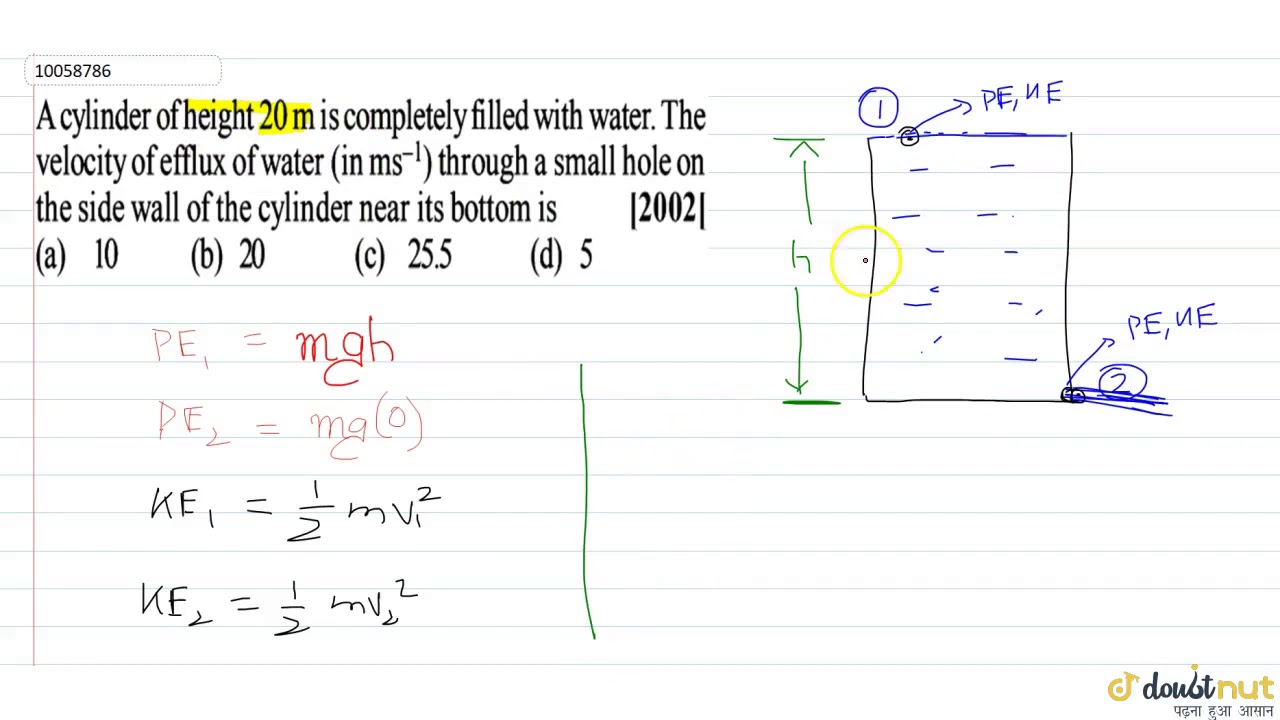 10058786
A cylinder of height 20 m is completely filled with water. The
velocity of efflux of water (in ms⁻¹) through a small hole on
the side wall of the cylinder near its bottom is [2002]
(a) 10 (b) 20 (c) 25.5 (d) 5
PE₁ = mgh
PE₂ = mg(0)
KE₁ = 1/2 mv₁²
KE₂ = 1/2 mv₂²
1
PE, KE
h
PE, KE
2
doubtnut
पढ़ना हुआ आसान